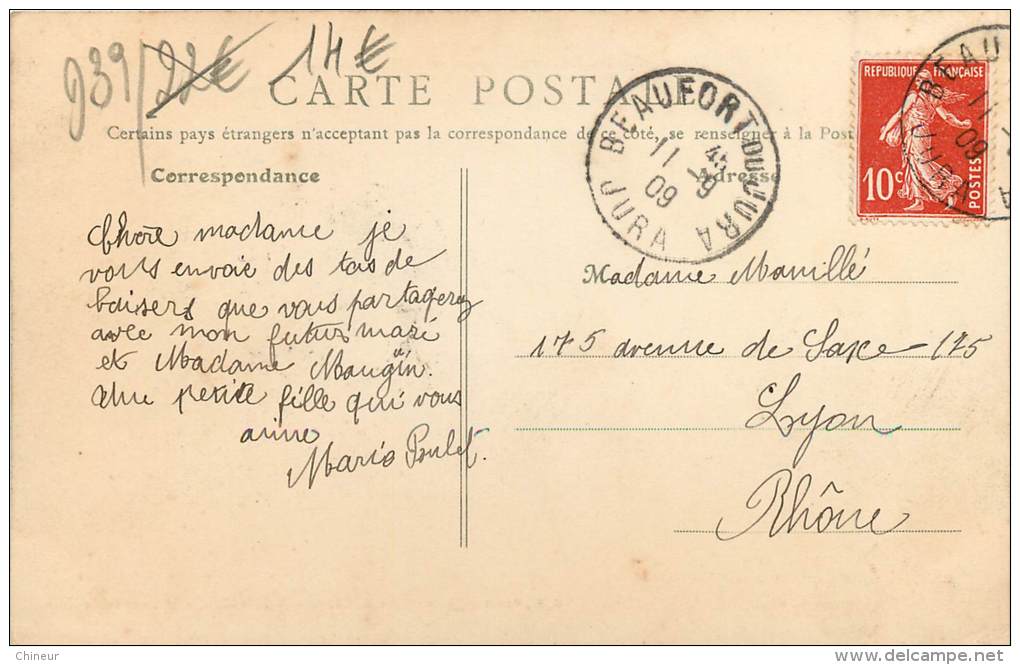 939/22€ 14€
CARTE POSTALE
Certains pays étrangers n'acceptant pas la correspondance de ce côté, se renseigner à la Post
Correspondance
Adresse
BEAUFORT DU JURA
11 45
-9
09
JURA
RÉPUBLIQUE FRANÇAISE
10c POSTES
BEAU
11
09
JURA
Chère madame je
vous envoie des tas de
baisers que vous partagerez
avec mon futur mari
et Madame Maugin.
Une petite fille qui vous
aime
Maria Poulet.
Madame Manillé
175 avenue de Saxe - 175
Lyon
Rhône
Chineur
delcampe.net